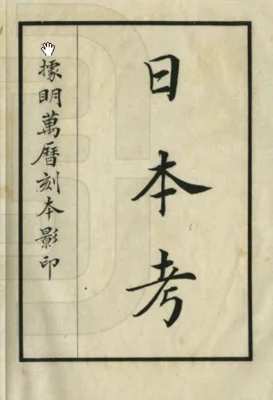 日本考
據明萬曆刻本影印